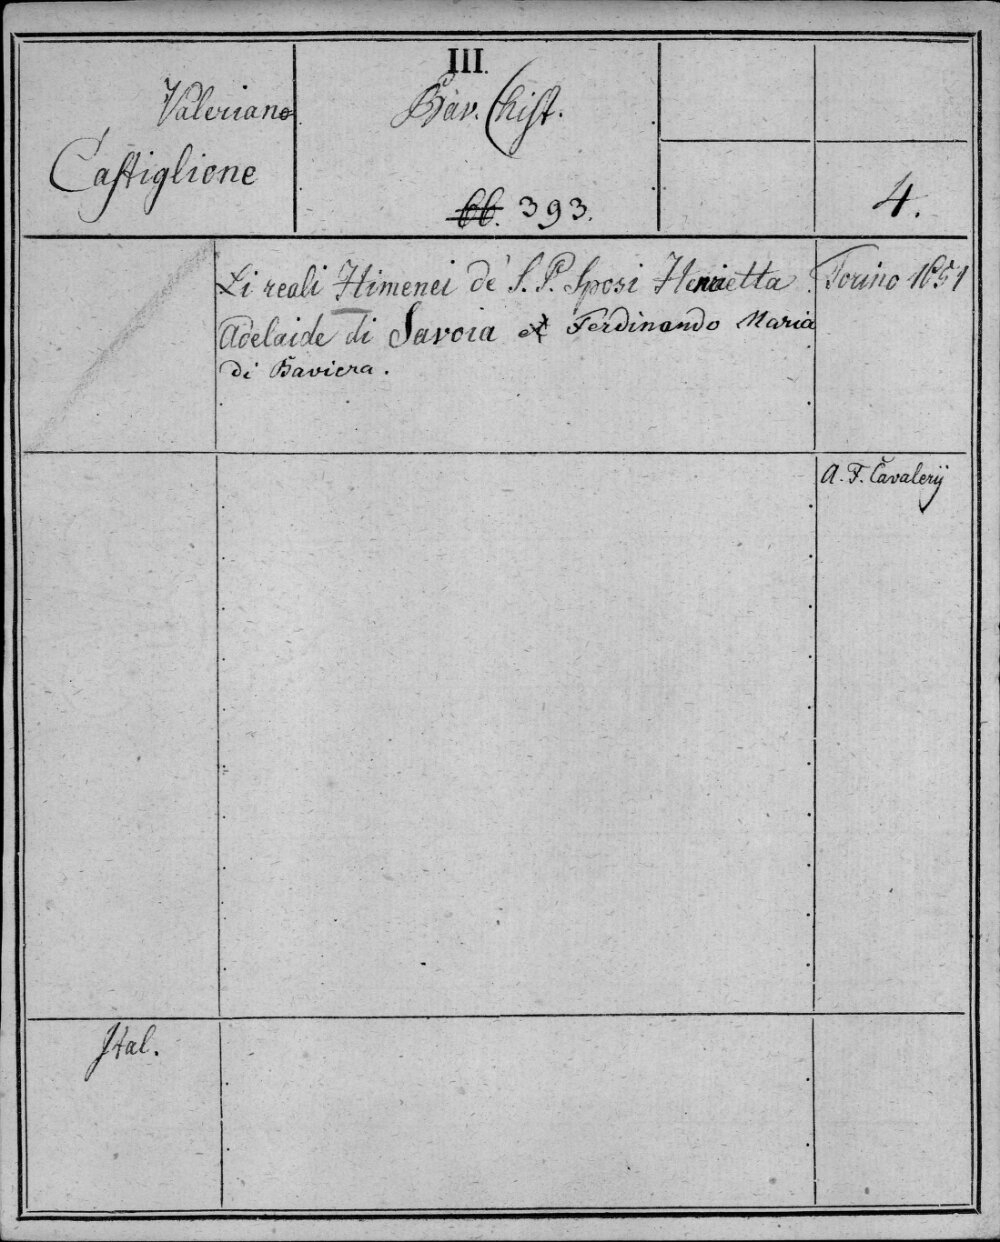 III.
Valeriano
Bav. Hist.
Castiglione
66. 393.
4.
Li reali Himenei de' S. P. Sposi Henrietta
Torino 1651
Adelaide di Savoia et Ferdinando Maria
di Baviera.
A. F. Cavalerij
Ital.